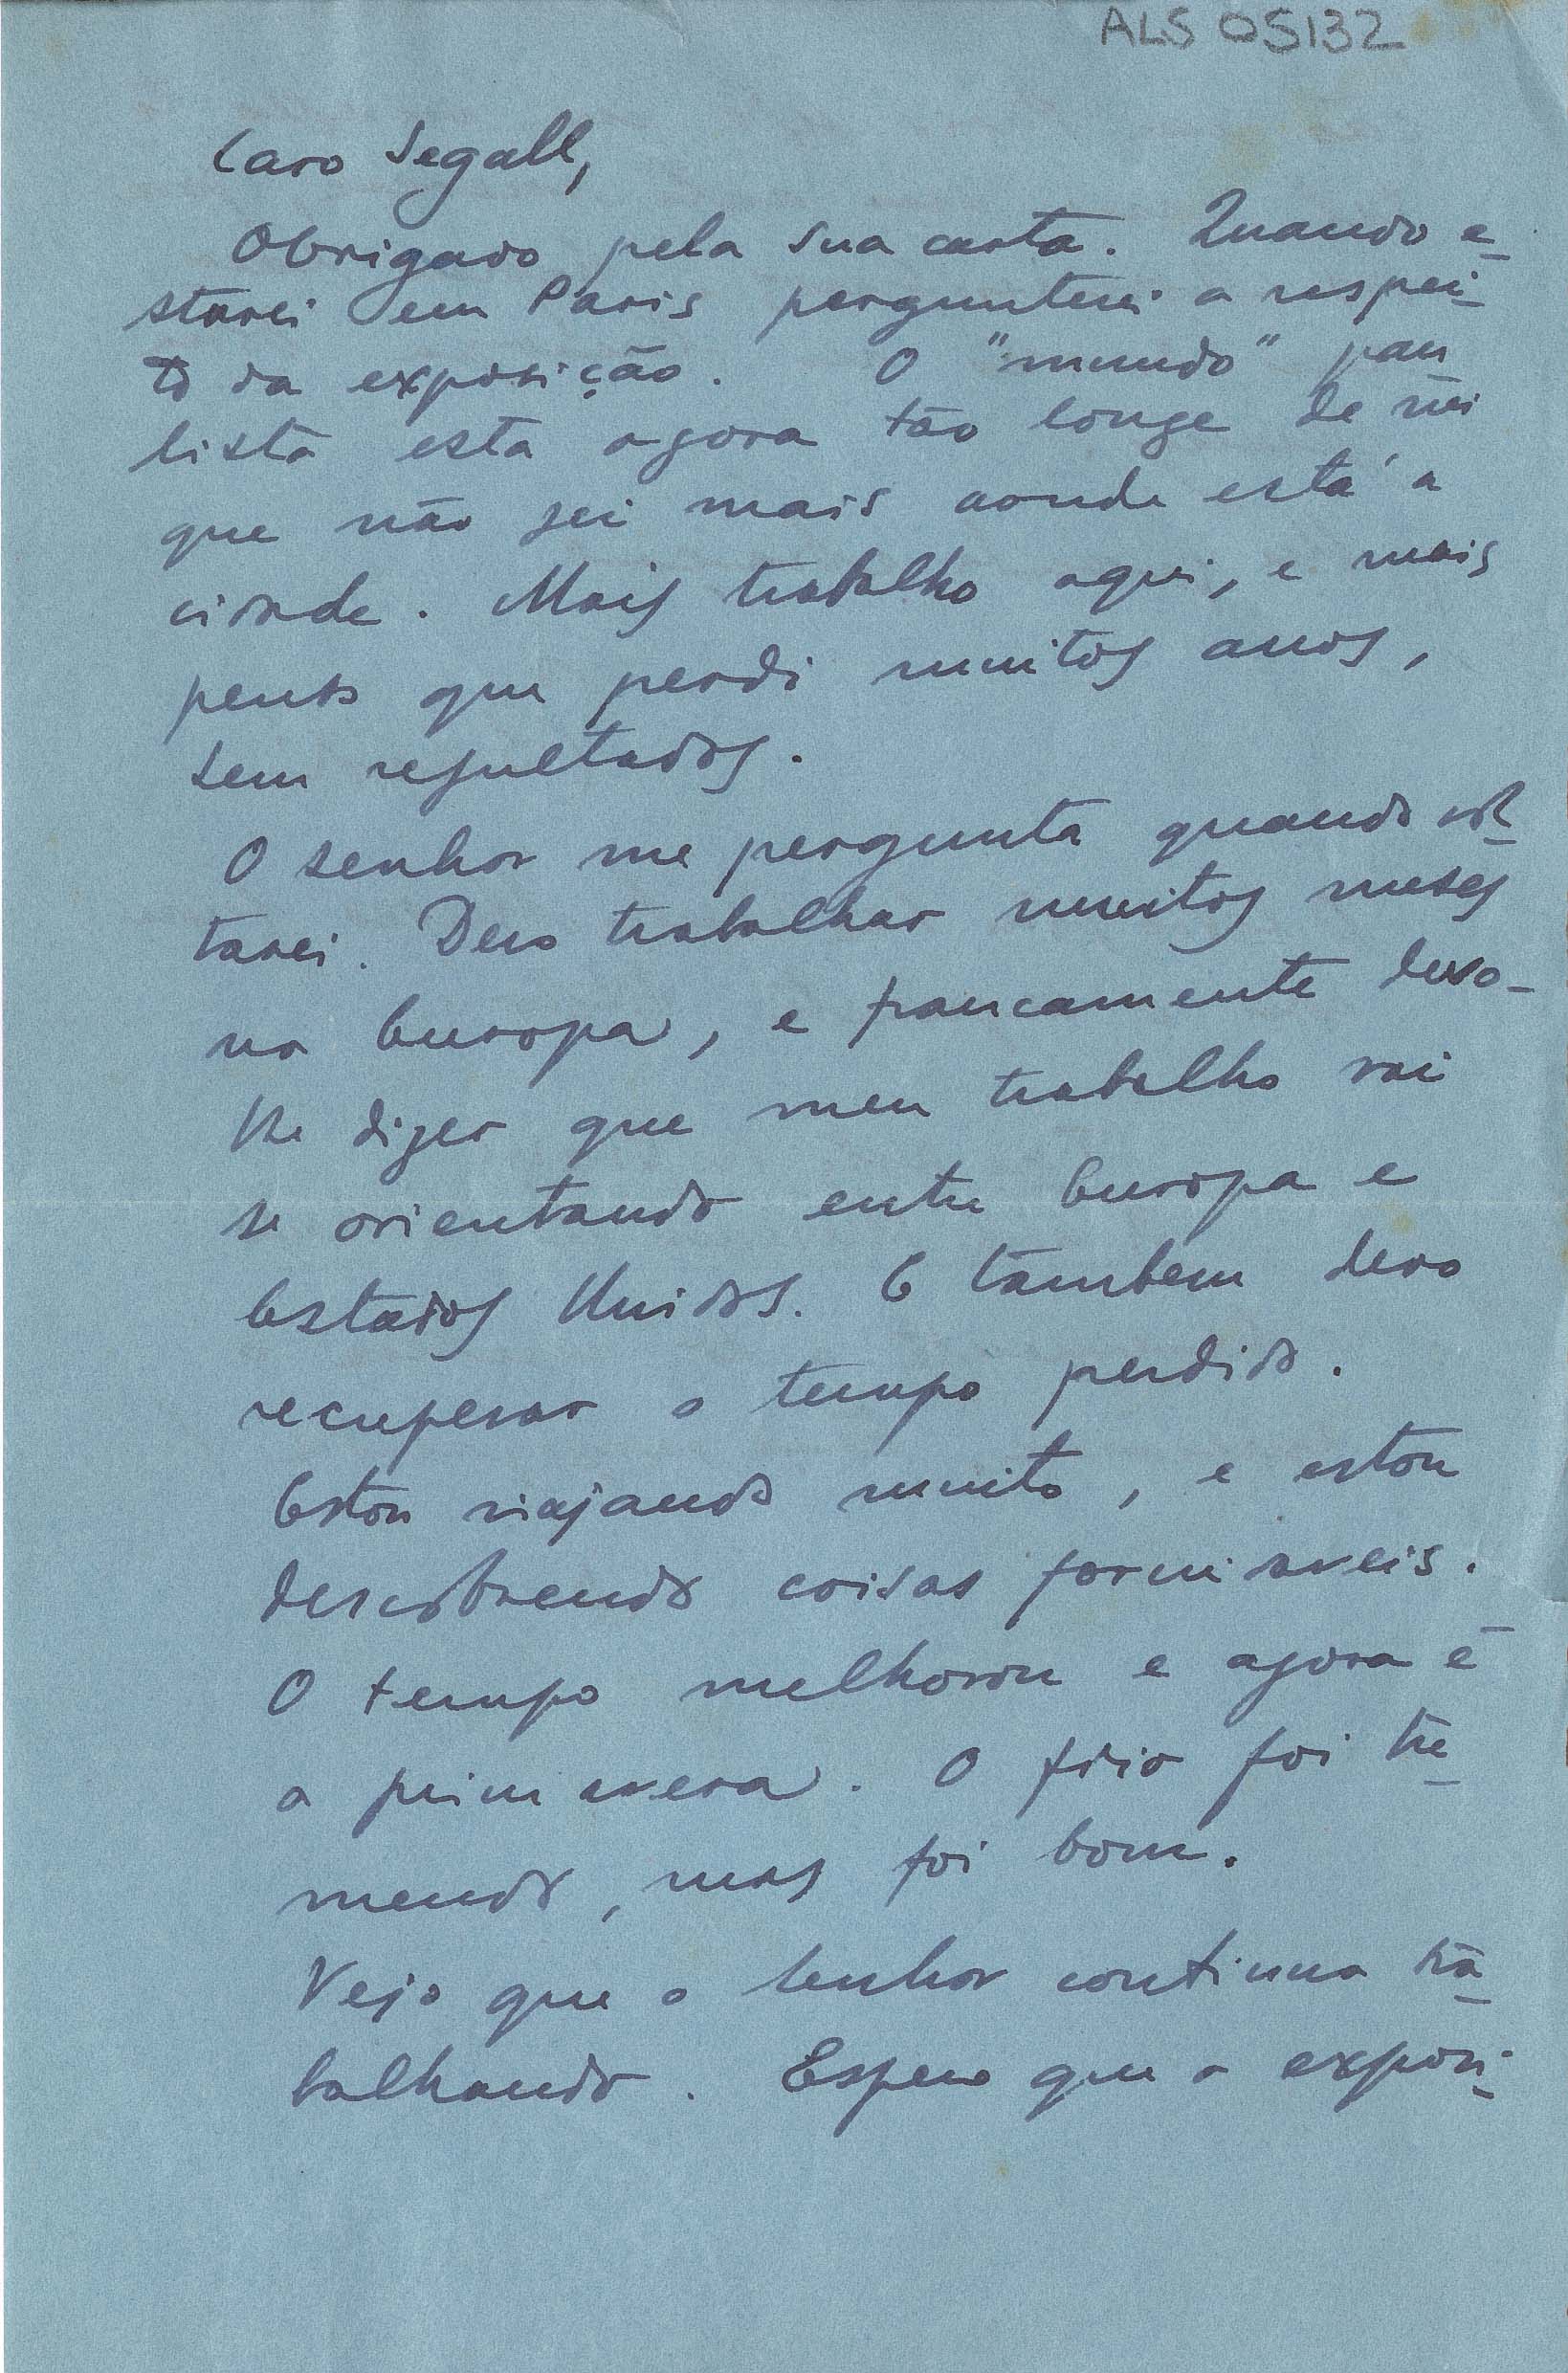 ALS 05132
Caro Segall,
Obrigado pela sua carta. Quando e-
starei em Paris perguntei a respei-
to da exposição. O "mundo" pau
lista esta agora tão longe de mi
que não sei mais aonde está a
cidade. Mais trabalho aqui, e mais
penso que perdi muitos anos,
sem resultados.
O senhor me pergunta quando
tarei. Devo trabalhar muitos meses
na Europa, e francamente devo-
lhe dizer que meu trabalho vai
se orientando entre Europa e
Estados Unidos. E tambem devo
recuperar o tempo perdido.
Estou viajando muito, e estou
descobrendo coisas formidaveis.
O tempo melhorou e agora é
a primavera. O frio foi tre
mendo, mas foi bom.
Vejo que o senhor continua tra
balhando. Espero que a exposi-